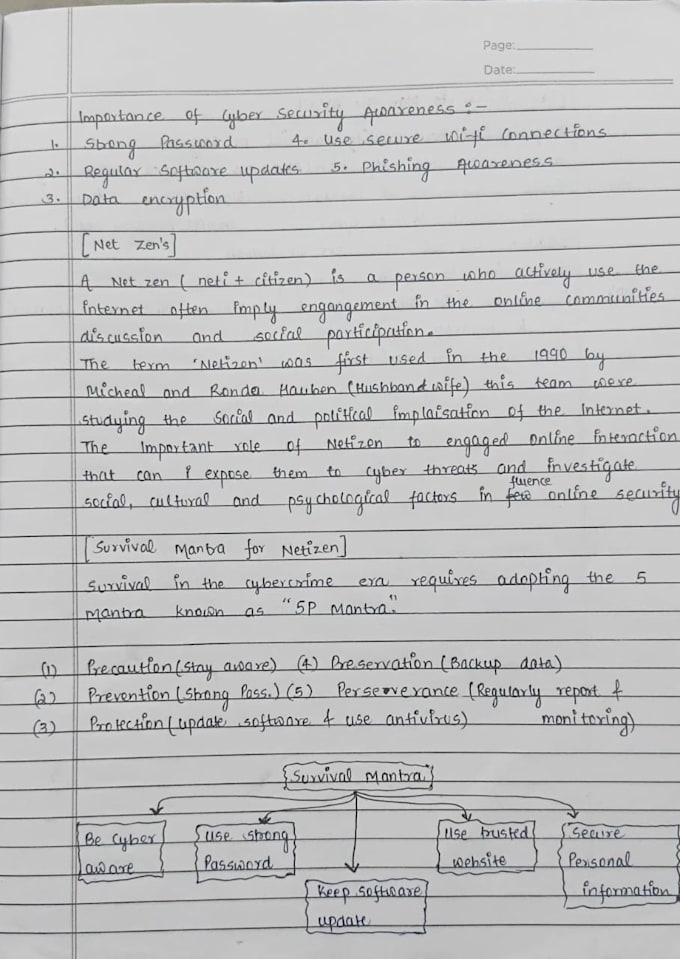 Page:
Date:
Importance of Cyber Security Awareness :-
1. Strong Password 4. Use secure wi-fi Connections
2. Regular Software updates 5. Phishing Awareness
3. Data encryption
[Net Zen's]
A Net zen ( neti + citizen) is a person who actively use the
internet often imply engangement in the online communities
discussion and social participation.
The term 'Netizen' was first used in the 1990 by
Micheal and Ronda Hauben (Hushband wife) this team were
studying the Social and political implaisation of the Internet.
The Important role of Netizen to engaged online interaction
that can expose them to cyber threats and investigate
social, cultural and psychological factors in fluence online security
[Survival Mantra for Netizen]
Survival in the cybercrime era requires adopting the 5
mantra known as "5P Mantra."
(1) Precaution (stay aware) (4) Preservation (Backup data)
(2) Prevention (Strong Pass.) (5) Perseverance (Regularly report &
(3) Protection (update software & use antivirus) monitoring)
Survival Mantra
Be Cyber
aware
Use strong
Password
Keep software
update
Use trusted
website
Secure
Personal
information